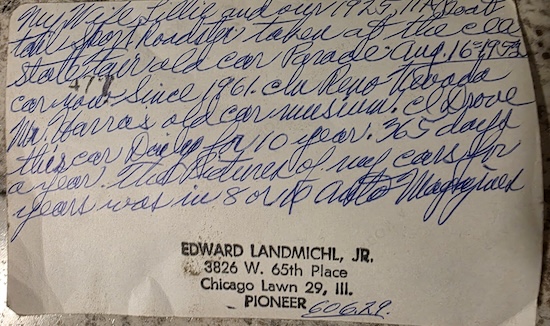 My Wife Lillie and our 1925 Boat
tail Sport Roadster taken at the
State Fair old car Parade Aug. 16-1952
477
car now Since 1961. In Reno Nevada
Mr. Harrax old car museum. I Drove
this car Daily for 10 year. 365 days
a year. The Pictures of my cars for
years was in 8 or 16 Auto Magazines
EDWARD LANDMICHL, JR.
3826 W. 65th Place
Chicago Lawn 29, Ill.
PIONEER 60629.